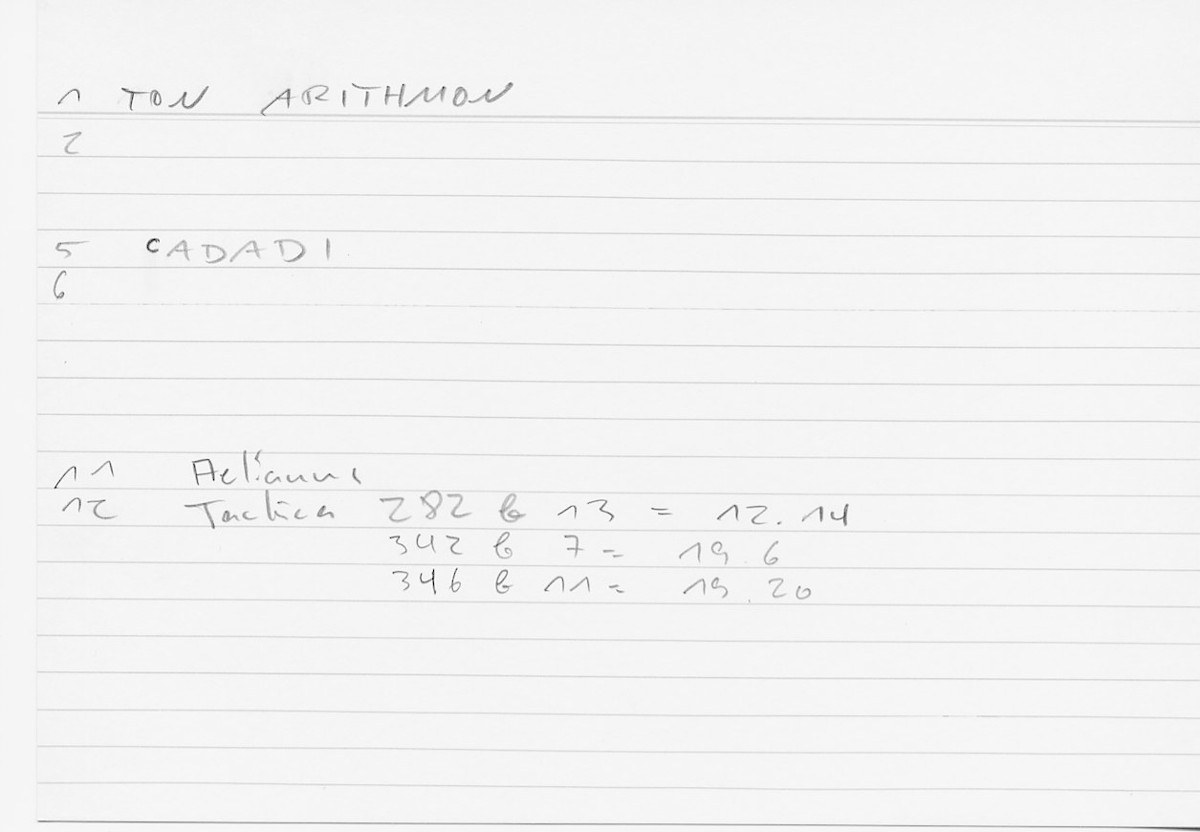 1 TON ARITHMON
2
5 CADADI
6
11 Aelianus
12 Tactica 282 b 13 = 12.14
342 b 7 = 19.6
346 b 11 = 19.20